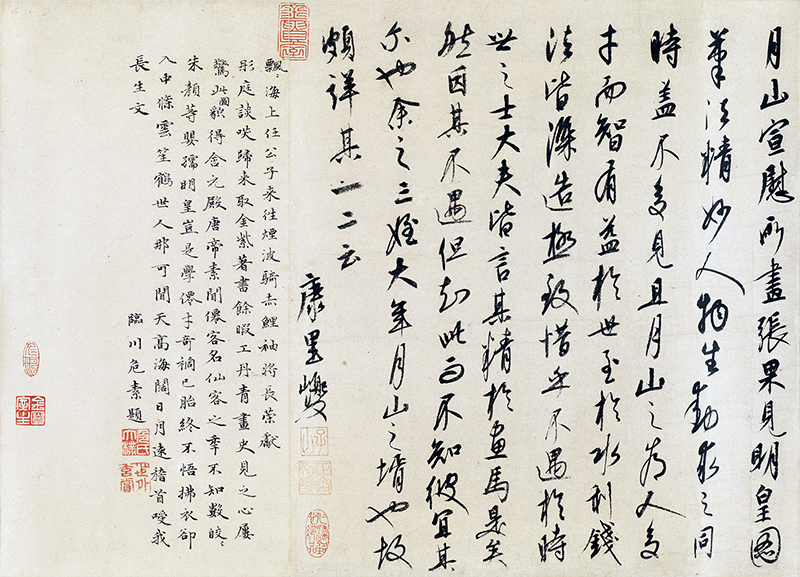 月山宣慰所畫張果見明皇圖
筆法精妙人物生動求之同
時蓋不多見且月山之為人多
才而智有益於世至於水利錢
法皆深造極致惜乎不遇於時
世之士大夫皆言其精於畫馬是矣
然因其不遇但知此而不知彼宜其
尒也余之三姪大年月山之壻也故
頗詳其一二云
康里巎
飄〻海上任公子來往煙波騎赤鯉袖將長策獻
彤庭談咲歸來取金紫著書餘暇工丹青畫史見之心屢
驚此圖貌得含元殿唐帝素聞僊客名仙客之年不知數皎〻
朱顏等嬰孺明皇豈是學僊才奇禍已胎終不悟拂衣卻
入中條雲笙鶴世人那可聞天高海闊日月遠稽首我
長生文
臨川危素題